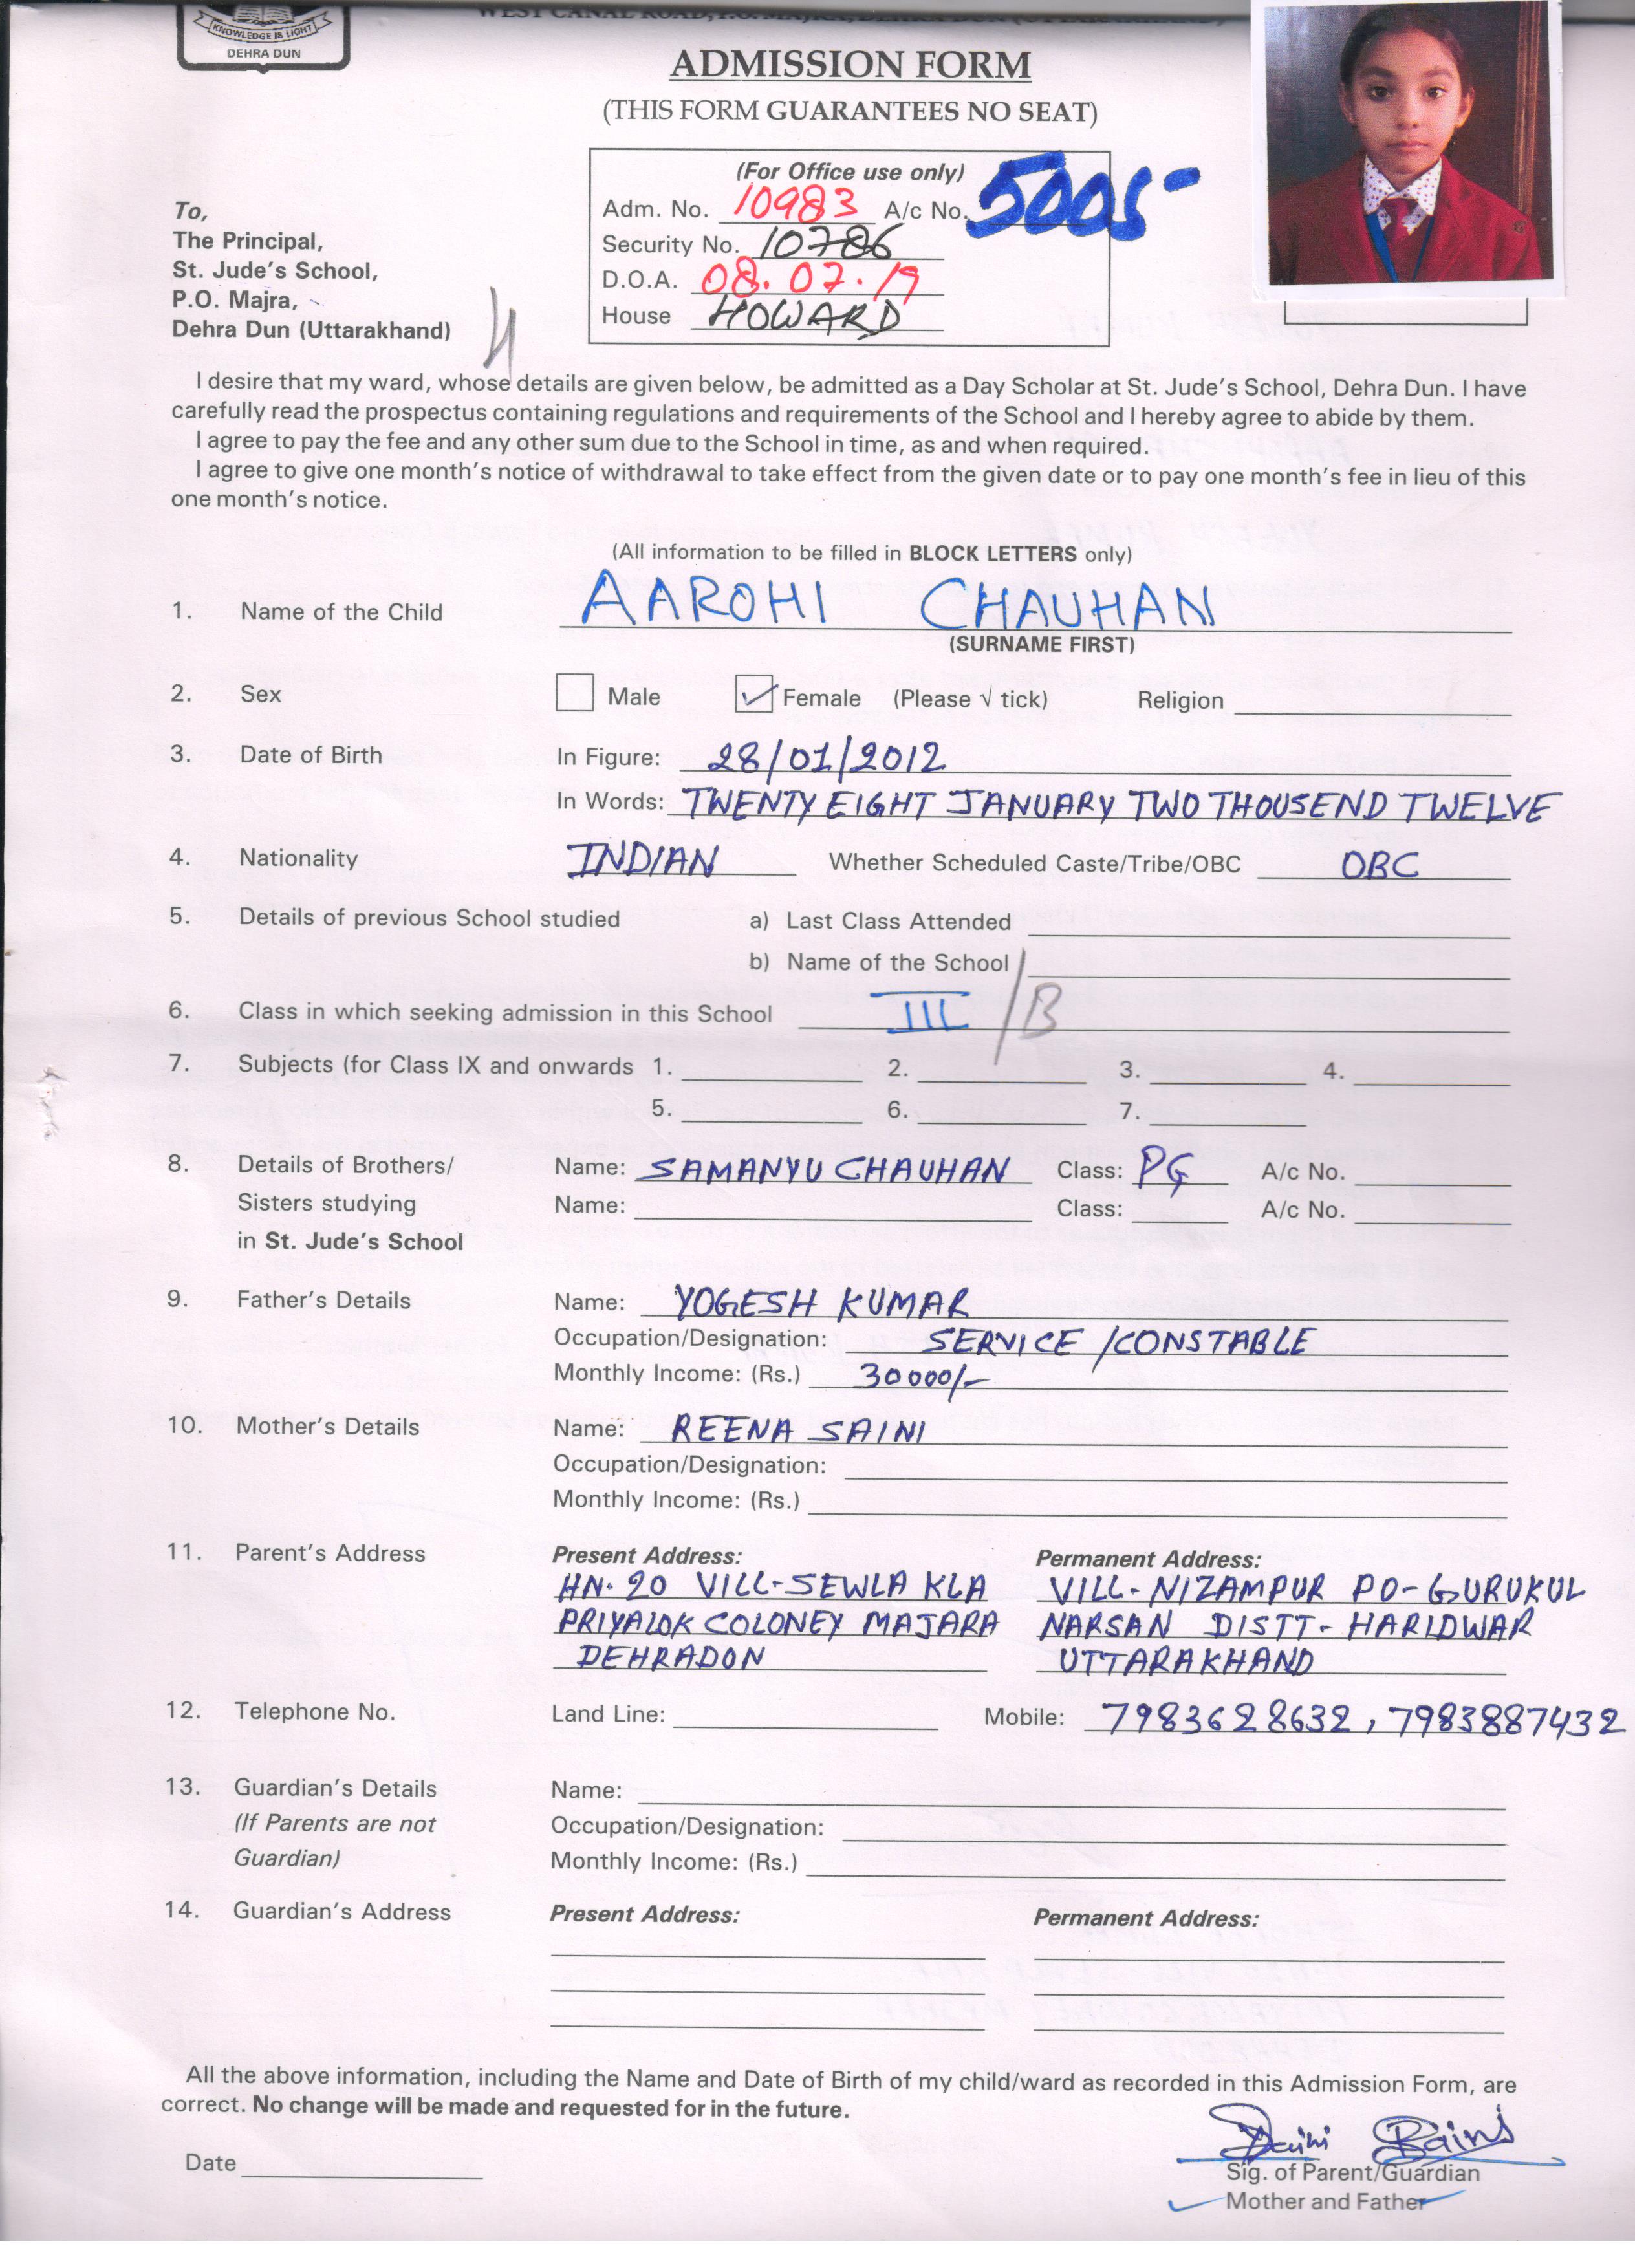 KNOWLEDGE IS LIGHT
DEHRA DUN
WEST CANAL ROAD, P.O. MAJRA, DEHRA DUN (UTTARAKHAND)
ADMISSION FORM
(THIS FORM GUARANTEES NO SEAT)
(For Office use only)
Adm. No. 10983 A/c No. 5005-
Security No. 10786
D.O.A. 08.07.19
House HOWARD
To,
The Principal,
St. Jude's School,
P.O. Majra,
Dehra Dun (Uttarakhand)
I desire that my ward, whose details are given below, be admitted as a Day Scholar at St. Jude's School, Dehra Dun. I have
carefully read the prospectus containing regulations and requirements of the School and I hereby agree to abide by them.
I agree to pay the fee and any other sum due to the School in time, as and when required.
I agree to give one month's notice of withdrawal to take effect from the given date or to pay one month's fee in lieu of this
one month's notice.
(All information to be filled in BLOCK LETTERS only)
1. Name of the Child AAROHI CHAUHAN
(SURNAME FIRST)
2. Sex Male ✓ Female (Please √ tick) Religion
3. Date of Birth In Figure: 28/01/2012
In Words: TWENTY EIGHT JANUARY TWO THOUSEND TWELVE
4. Nationality INDIAN Whether Scheduled Caste/Tribe/OBC OBC
5. Details of previous School studied a) Last Class Attended
b) Name of the School
6. Class in which seeking admission in this School III /B
7. Subjects (for Class IX and onwards 1. 2. 3. 4.
5. 6. 7.
8. Details of Brothers/ Name: SAMANYU CHAUHAN Class: PG A/c No.
Sisters studying Name: Class: A/c No.
in St. Jude's School
9. Father's Details Name: YOGESH KUMAR
Occupation/Designation: SERVICE /CONSTABLE
Monthly Income: (Rs.) 30000/-
10. Mother's Details Name: REENA SAINI
Occupation/Designation:
Monthly Income: (Rs.)
11. Parent's Address Present Address: Permanent Address:
HN. 20 VILL-SEWLA KLA VILL- NIZAMPUR PO- GURUKUL
PRIYALOK COLONEY MAJARA NARSAN DISTT- HARIDWAR
DEHRADON UTTARAKHAND
12. Telephone No. Land Line: Mobile: 7983628632, 7983887432
13. Guardian's Details Name:
(If Parents are not Occupation/Designation:
Guardian) Monthly Income: (Rs.)
14. Guardian's Address Present Address: Permanent Address:
All the above information, including the Name and Date of Birth of my child/ward as recorded in this Admission Form, are
correct. No change will be made and requested for in the future.
Date
Sig. of Parent/Guardian
Mother and Father